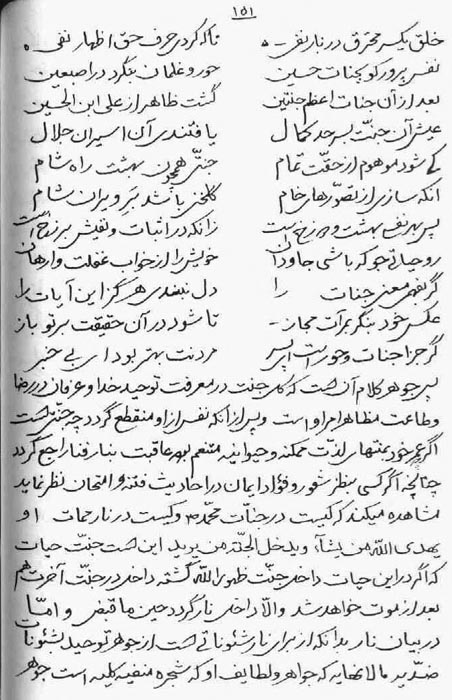 ١٥١
خلق یکسر محترق در نار نفی تا که کردی حرف حق اظهار نفی
نفس پرور کو بجنات حسین حور و غلمان بنگرد در اصبعین
بعد از آن جنات اعظم جنتین گشت ظاهر از علی ابن الحسین
عیش آن جنت بسر حد کمال یافتندی آن اسیران حلال
کی شود موهوم از حقت تمام جنتی همچون بهشت راه شام
آنکه سازی از تصورهای خام گلخنی باشد بر ویران شام
پس بهر نفس بهشت و دوزخ است زانکه در اثبات و نفیش برزخ است
رو حیاتی جو که باشی جاودان خویش را از خواب غفلت وارهان
گر بفهمی معنی جنات را دل نبندی هرگز این آیات را
عکس خود بنگر بمرآت مجاز تا شود در آن حقیقت سر تو باز
گر جزا جنات و حور است ای پسر مردنت بهتر بود ای بی خبر
پس جوهر کلام آن است که کل جنت در معرفت توحید خدا و عرفان در رضا
و طاعت مظاهر امر او است و پس از آنکه نفس از او منقطع گردد چه جنتی است
اگر عمر خود بمنتهای لذت ممکنه و حیوانیه متنعم بهر عاقبت بنار فنا راجع گردد
چنانچه اگر کسی بنظر شعور و فؤاد ایمان در احادیث فتنه و امتحان نظر نماید
مشاهده میکند که کیست در جنات محمد ص و کیست در نار حمات او
یهدی الله من یشآء و یدخل الجنة من یرید این است جنت حیات
که اگر در این حیات داخل جنت ظهور الله گشته داخل در جنت آخرت هم
بعد از موت خواهد شد و الا داخل نار گردد حین ما قبض و امّا
در بیان نار بدانکه از برای نار شئوناتی است از جوهر توحید لشئونات
ضدیه مالانهایه که جواهر و لطایف او که شجره منفیه کلیه است جوهر